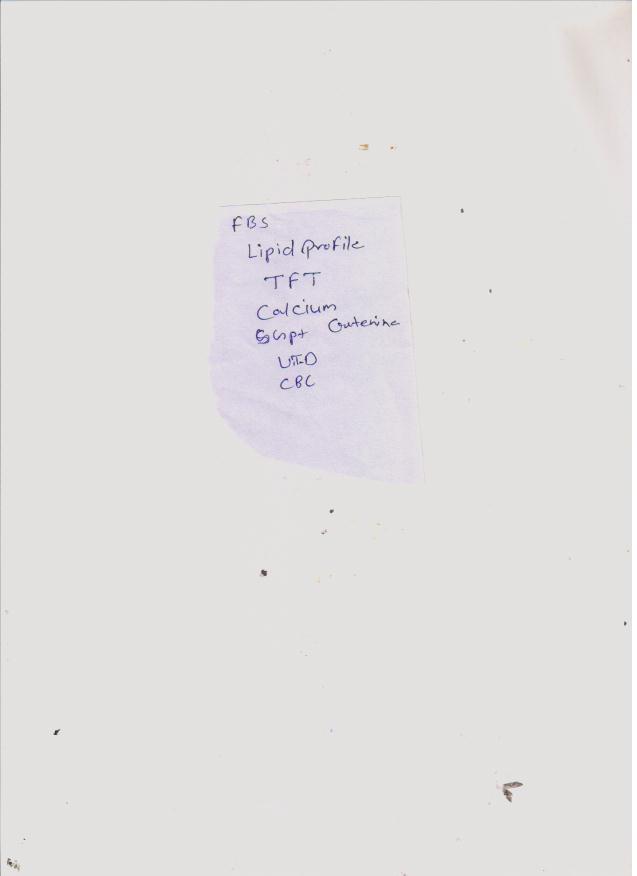 FBS
Lipid Profile
TFT
Calcium
SGpt Createnine
VIT-D
CBC